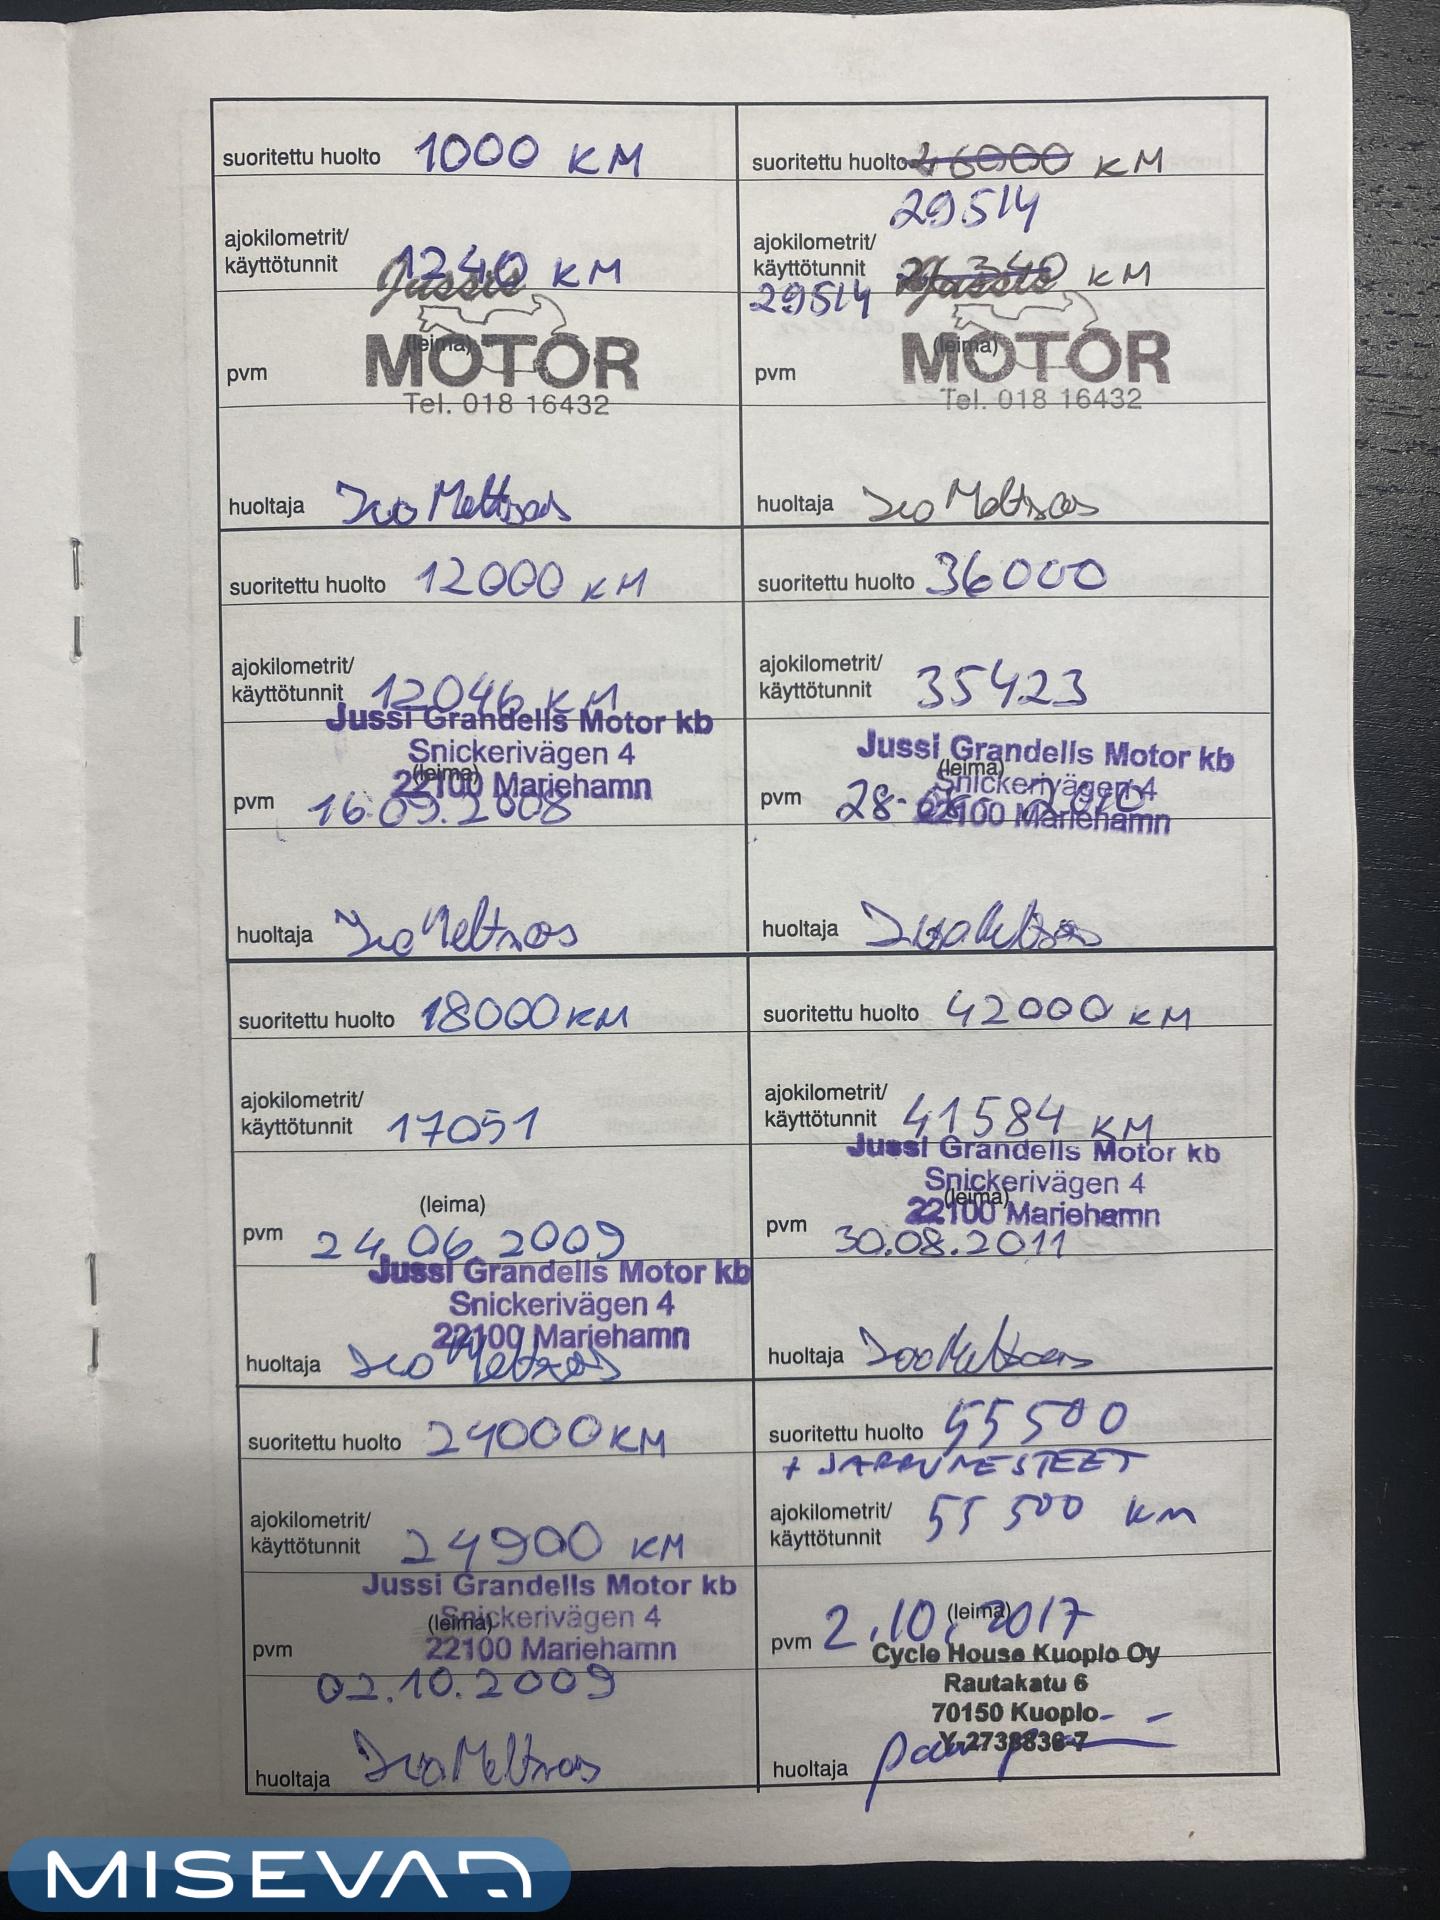 suoritettu huolto 1000 KM
ajokilometrit/
käyttötunnit 1240 KM
Jussis
MOTOR
(leima)
pvm
Tel. 018 16432
huoltaja
suoritettu huolto 12000 KM
ajokilometrit/
käyttötunnit 12046 KM
Jussi Grandells Motor kb
Snickerivägen 4
(leima)
22100 Mariehamn
pvm 16.09.2008
huoltaja
suoritettu huolto 18000 KM
ajokilometrit/
käyttötunnit 17051
(leima)
pvm 24.06.2009
Jussi Grandells Motor kb
Snickerivägen 4
22100 Mariehamn
huoltaja
suoritettu huolto 24000 KM
ajokilometrit/
käyttötunnit 24900 KM
Jussi Grandells Motor kb
(leima) Snickerivägen 4
pvm 22100 Mariehamn
02.10.2009
huoltaja
suoritettu huolto KM
29514
ajokilometrit/
käyttötunnit 26340 KM
29514 Jussis
MOTOR
(leima)
pvm
Tel. 018 16432
huoltaja
suoritettu huolto 36000
ajokilometrit/
käyttötunnit 35423
Jussi Grandells Motor kb
(leima)
Snickerivägen 4
pvm 2010
22100 Mariehamn
huoltaja
suoritettu huolto 42000 KM
ajokilometrit/
käyttötunnit 41584 KM
Jussi Grandells Motor kb
Snickerivägen 4
(leima)
22100 Mariehamn
pvm 30.08.2011
huoltaja
suoritettu huolto 55500
+ JARRUNESTEET
ajokilometrit/
käyttötunnit 55 500 km
(leima)
pvm 2.10.2017
Cycle House Kuopio Oy
Rautakatu 6
70150 Kuopio
huoltaja
MISEVA